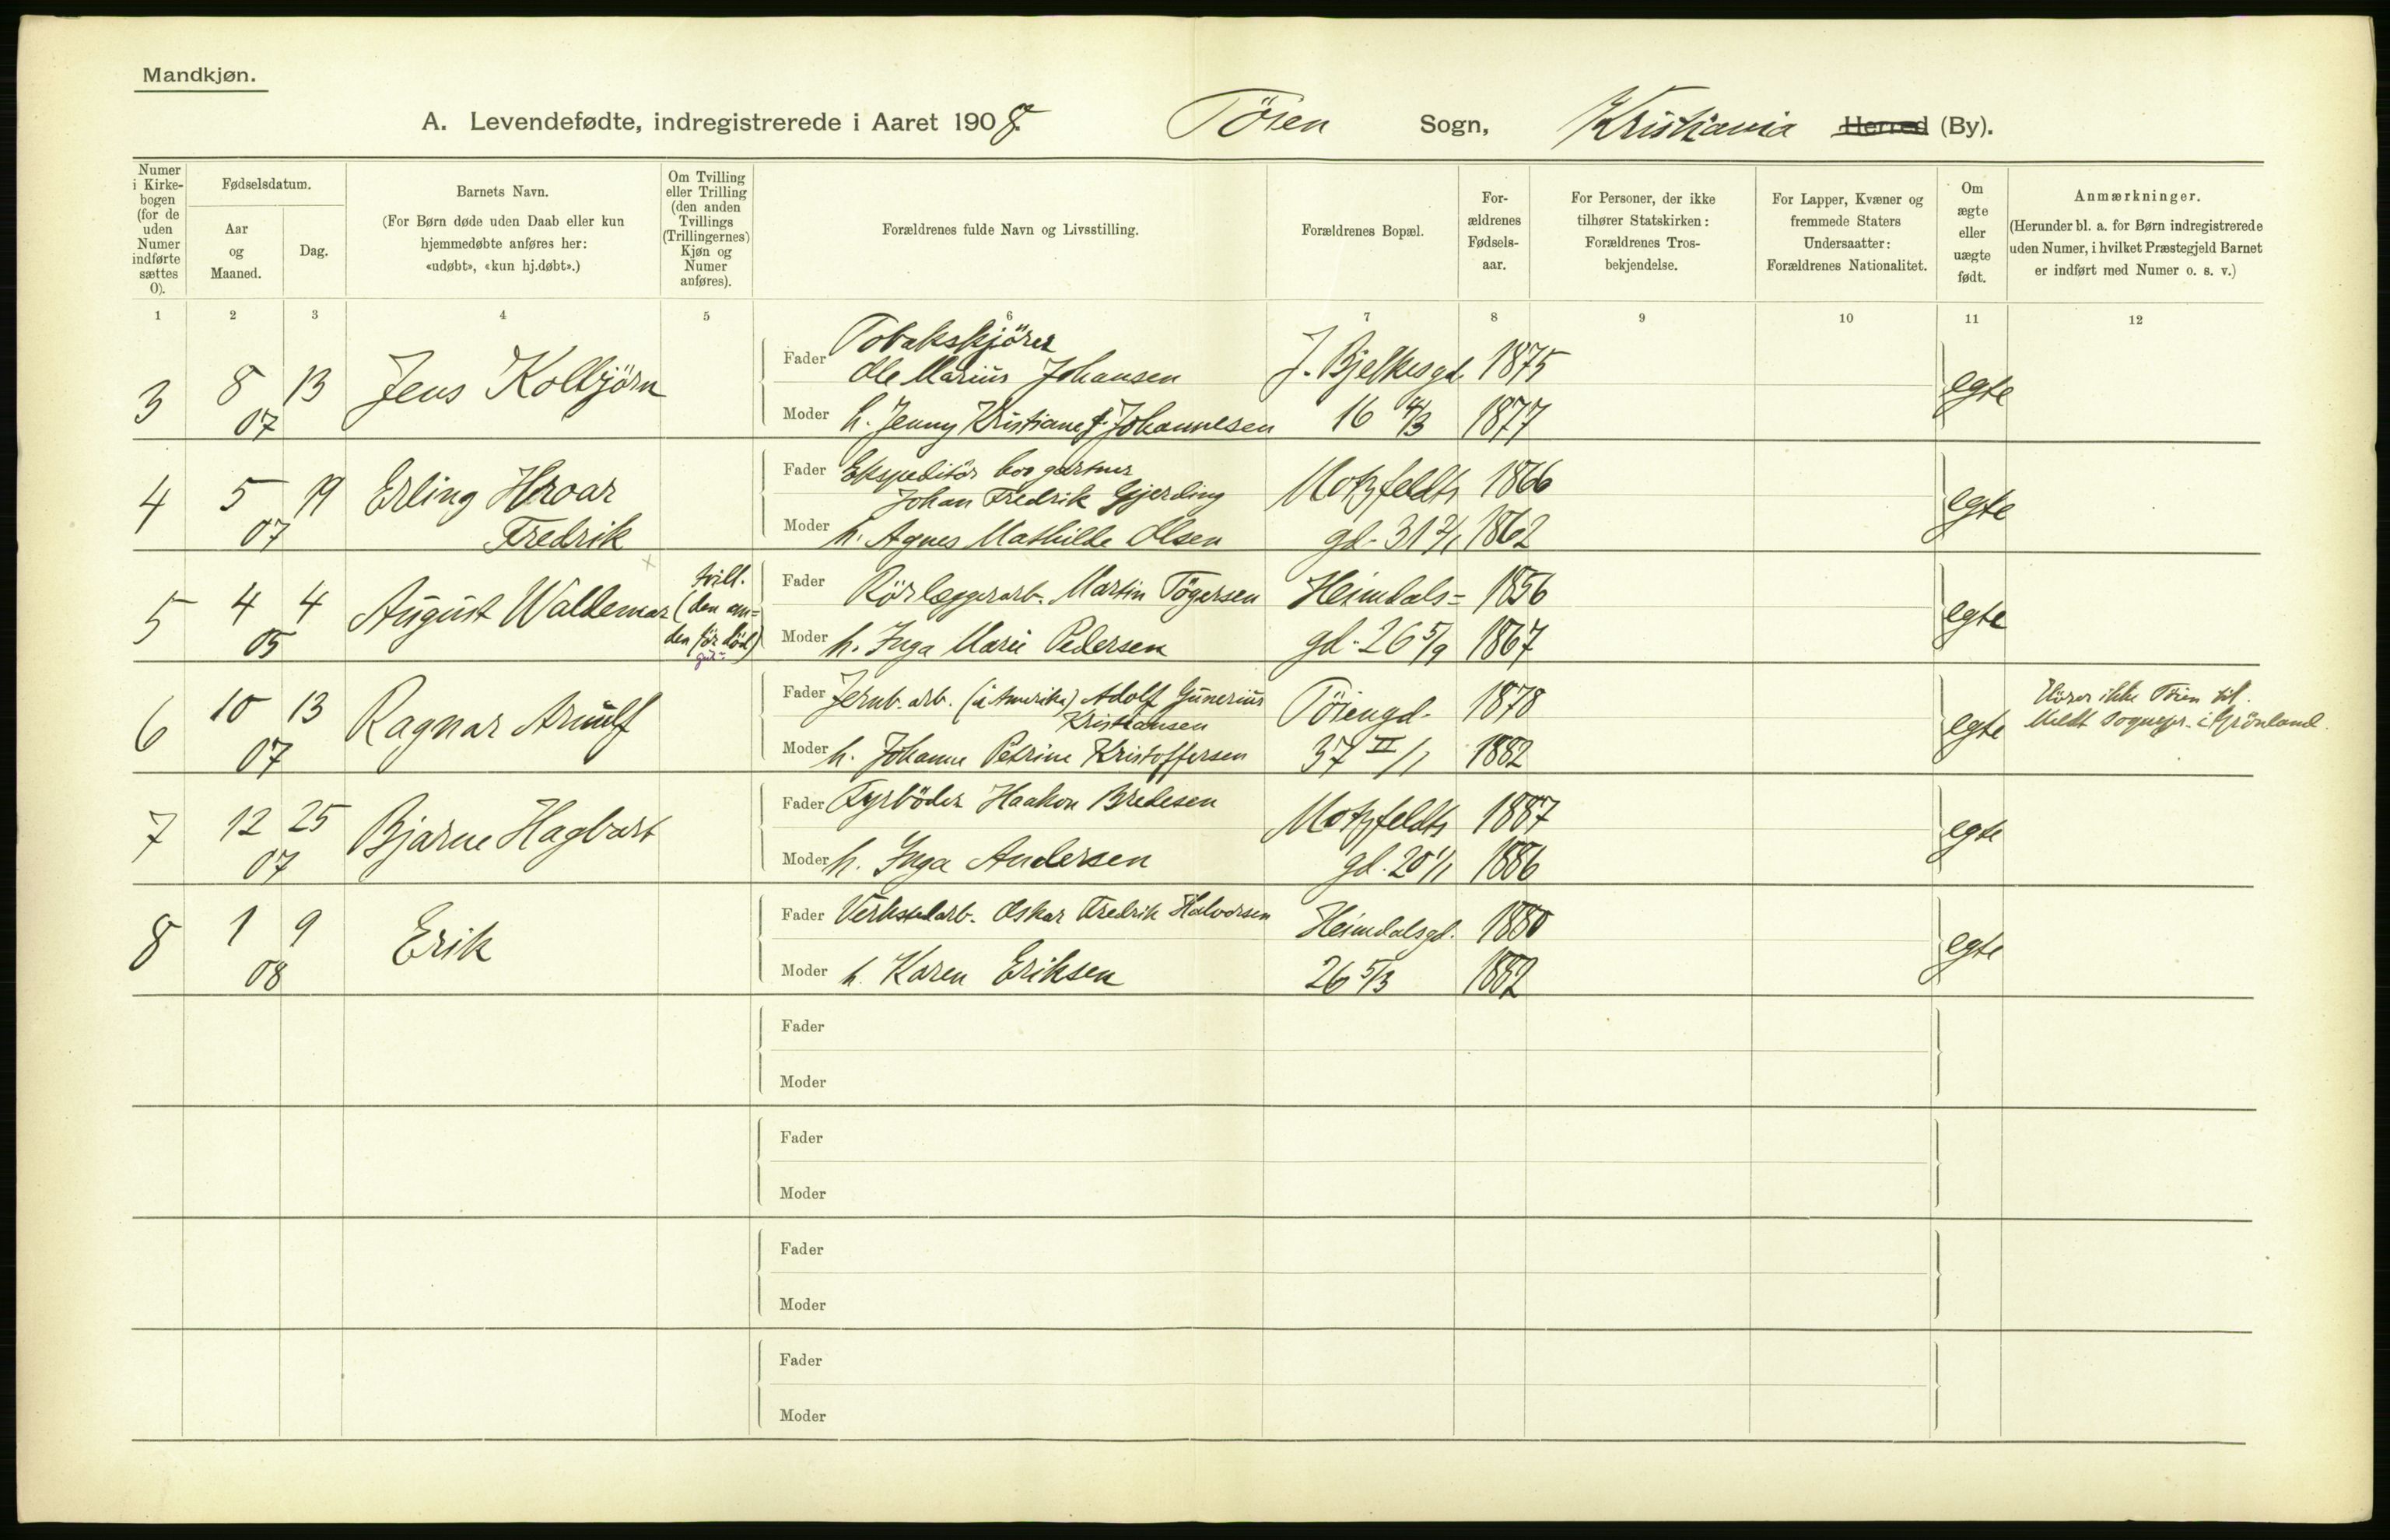 Mandkjøn.
A. Levendefødte, indregistrerede i Aaret 1908. Töien Sogn, Kristiania Herred (By).
Numer i Kirke-bogen (for de uden Numer indførte sættes 0).
Fødselsdatum.
Aar og Maaned.
Dag.
Barnets Navn.
(For Børn døde uden Daab eller kun
hjemmedøbte anføres her:
«udøbt», «kun hj.døbt».)
Om Tvilling
eller Trilling
(den anden
Tvillings
(Trillingernes)
Kjøn og
Numer
anføres).
Forældrenes fulde Navn og Livsstilling.
Forældrenes Bopæl.
For-
ældrenes
Fødsels-
aar.
For Personer, der ikke
tilhører Statskirken:
Forældrenes Tros-
bekjendelse.
For Lapper, Kvæner og
fremmede Staters
Undersaatter:
Forældrenes Nationalitet.
Om
ægte
eller
uægte
født.
Anmærkninger.
(Herunder bl. a. for Børn indregistrerede
uden Numer, i hvilket Præstegjeld Barnet
er indført med Numer o. s. v.)
1 2 3 4 5 6 7 8 9 10 11 12
3 8 13 Jens Kolbjörn
07
Fader Tobakskjörer
Ole Marius Johansen J. Bjelkesgd. 1875 egte
Moder h. Jenny Kristiane f. Johannesen 16 4/3 1877
4 5 19 Erling Hroar
07 Fredrik
Fader Ekspeditör hos gartner
Johan Fredrik Gjerding Motzfeldts 1866 egte
Moder h. Agnes Mathilde Olsen gd. 31 2/1 1862
5 4 4 August Waldemar
05
tvill.
(den an=
den för död)
Fader Rörlæggerarb. Martin Tögersen Heimdals= 1856 egte
Moder h. Inga Marie Pedersen gd. 26 5/9 1867
6 10 13 Ragnar Arnulf
07
Fader Jernb. arb. (i Amerika) Adolf Gunerius
Kristiansen Töiengd. 1878 egte
Moder h. Johanne Petrine Kristoffersen 37 II/1 1882
Hörer ikke Töien til.
Meldt sognepr. i Grönland.
7 12 25 Bjarne Hagbart
07
Fader Fyrböder Haakon Bredesen Motzfeldts 1887 egte
Moder h. Inga Andersen gd. 20 1/1 1886
8 1 9 Erik
08
Fader Verkstedarb. Oskar Fredrik Halvorsen Heimdalsgd. 1880 egte
Moder h. Karen Eriksen 26 5/3 1882
Fader
Moder
Fader
Moder
Fader
Moder
Fader
Moder